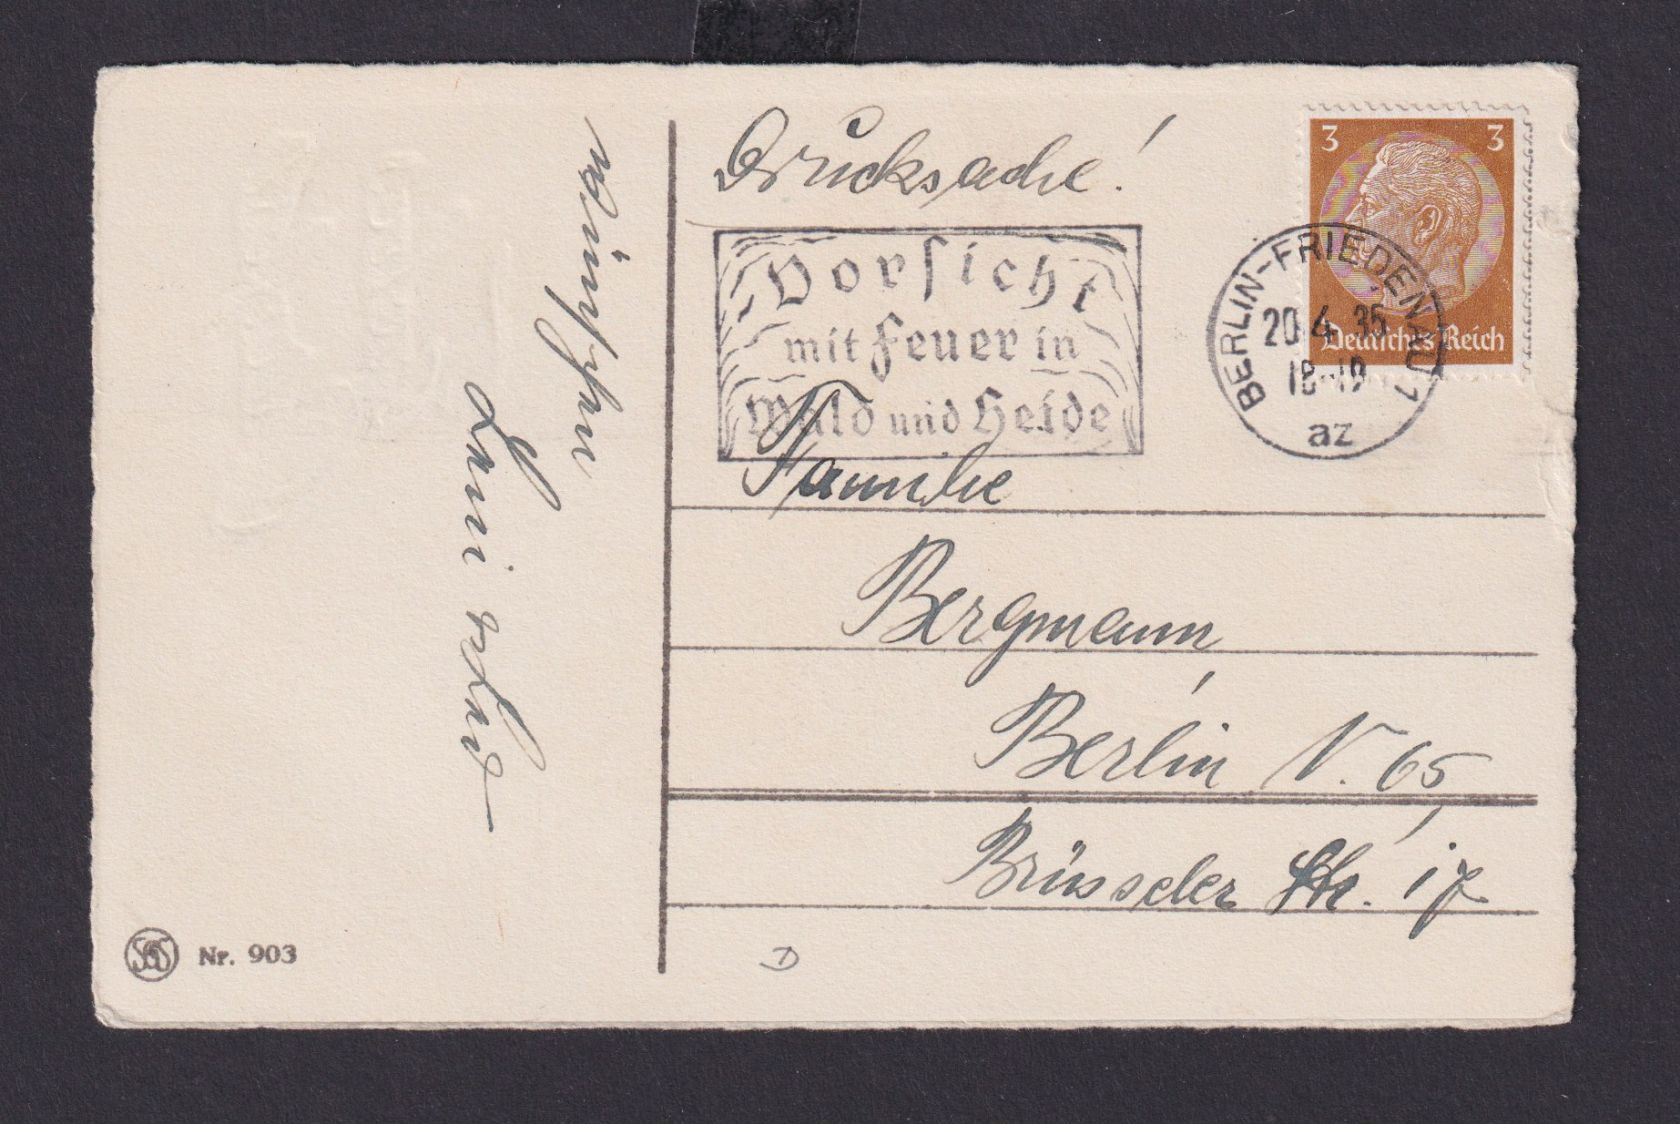 Drucksache!
3 3
Deutsches Reich
BERLIN-FRIEDENAU 1
20.4.35
18-19
az
Vorsicht
mit Feuer in
Wald und Heide
Familie
Bergmann
Berlin N. 65
Brüsseler Str. 17
wünschen
Nr. 903
D